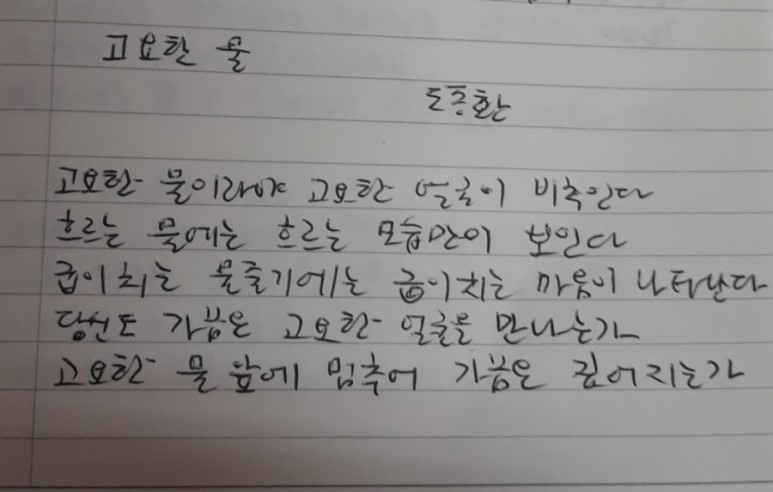 고요한 물
도종환
고요한 물이라야 고요한 얼굴이 비추인다
흐르는 물에는 흐르는 모습만이 보인다
굽이치는 물줄기에는 굽이치는 마음이 나타난다
당신도 가끔은 고요한 얼굴을 만나는가
고요한 물 앞에 멈추어 가끔은 깊어지는가